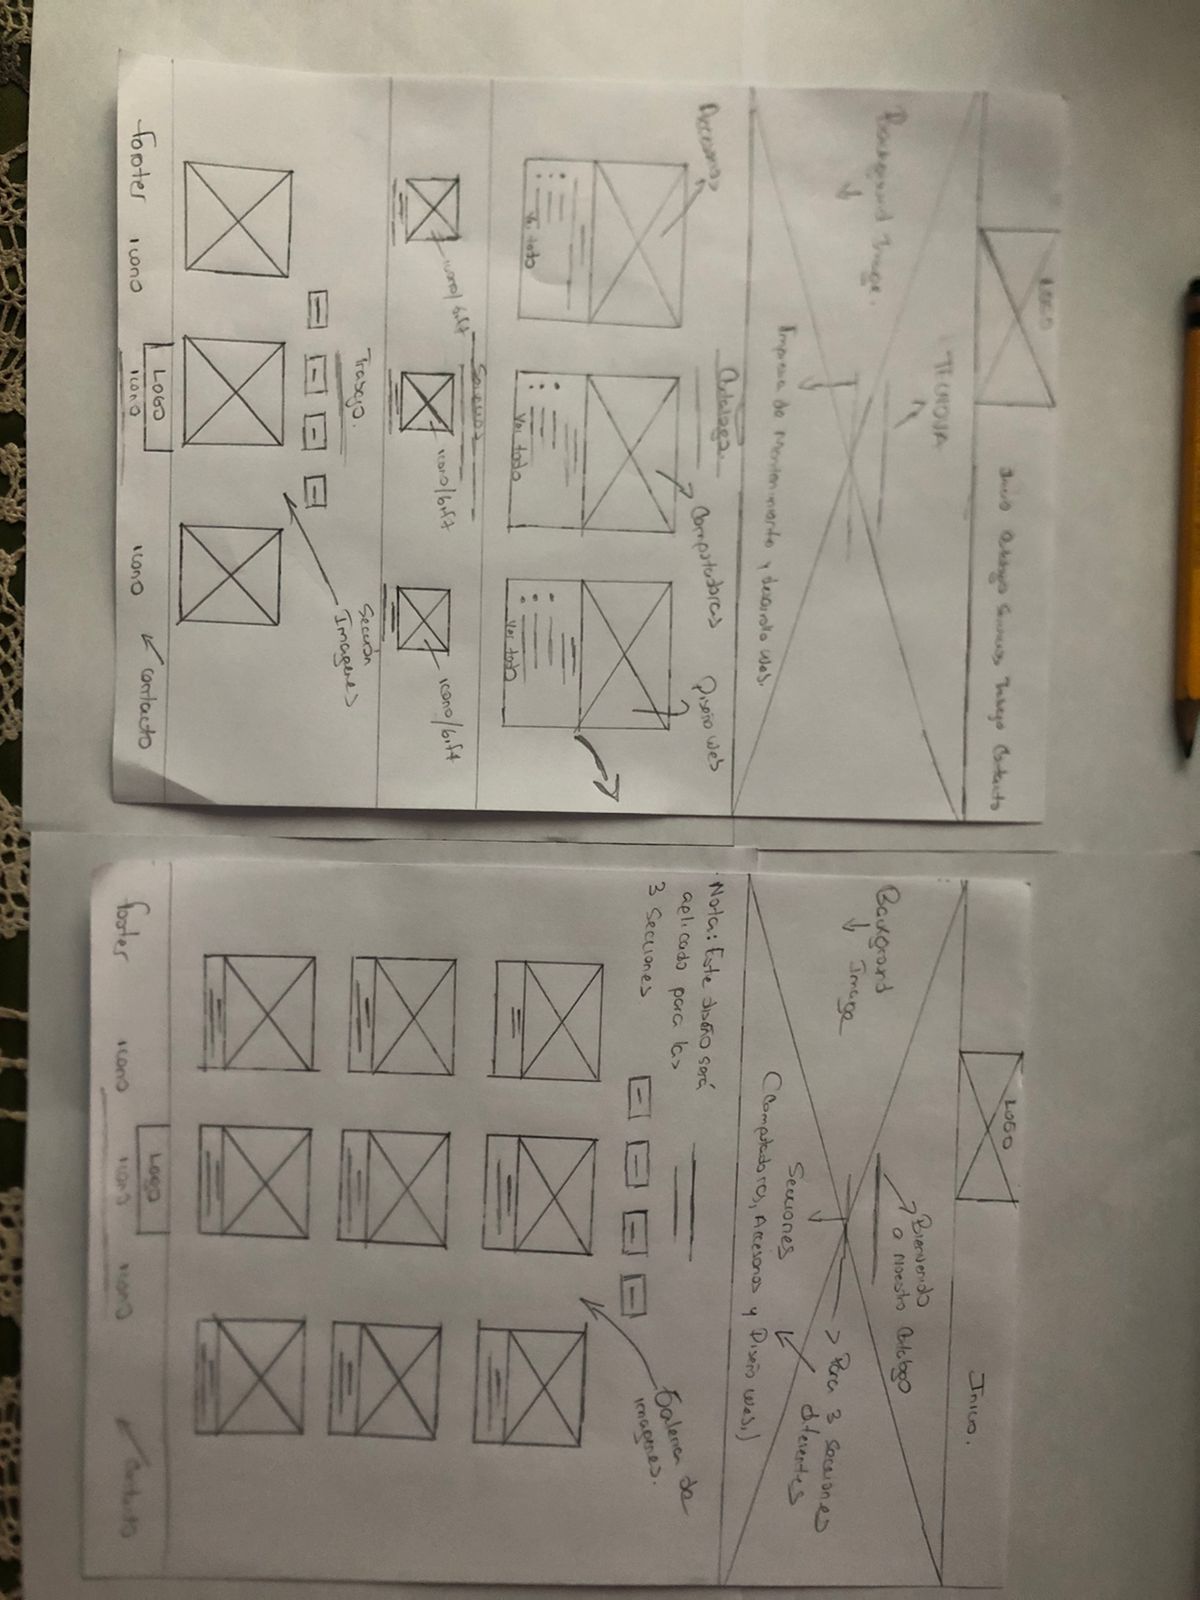 LOGO
Inicio Catalogo Servicios Trabajo Contacto
TECNOVA
Background Image.
Empresa de Mantenimiento y desarrollo Web.
Catalogo.
Accesorios
Computadoras
Diseño web
Ver todo
Ver todo
Ver todo
Servicios
icono/Gift
icono/Gift
icono/Gift
Trabajo.
Sección
Imagenes
LOGO
footer
icono
icono
icono
contacto
LOGO
Inicio.
Background
Image
Bienvenido
a Nuestro Catalogo
> Para 3 secciones
diferentes
Secciones
(Computadoras, Accesorios y Diseño Web.)
Nota: Este diseño será
aplicado para las
3 Secciones
Galeria de
imagenes.
LOGO
footer
icono
icono
icono
Contacto